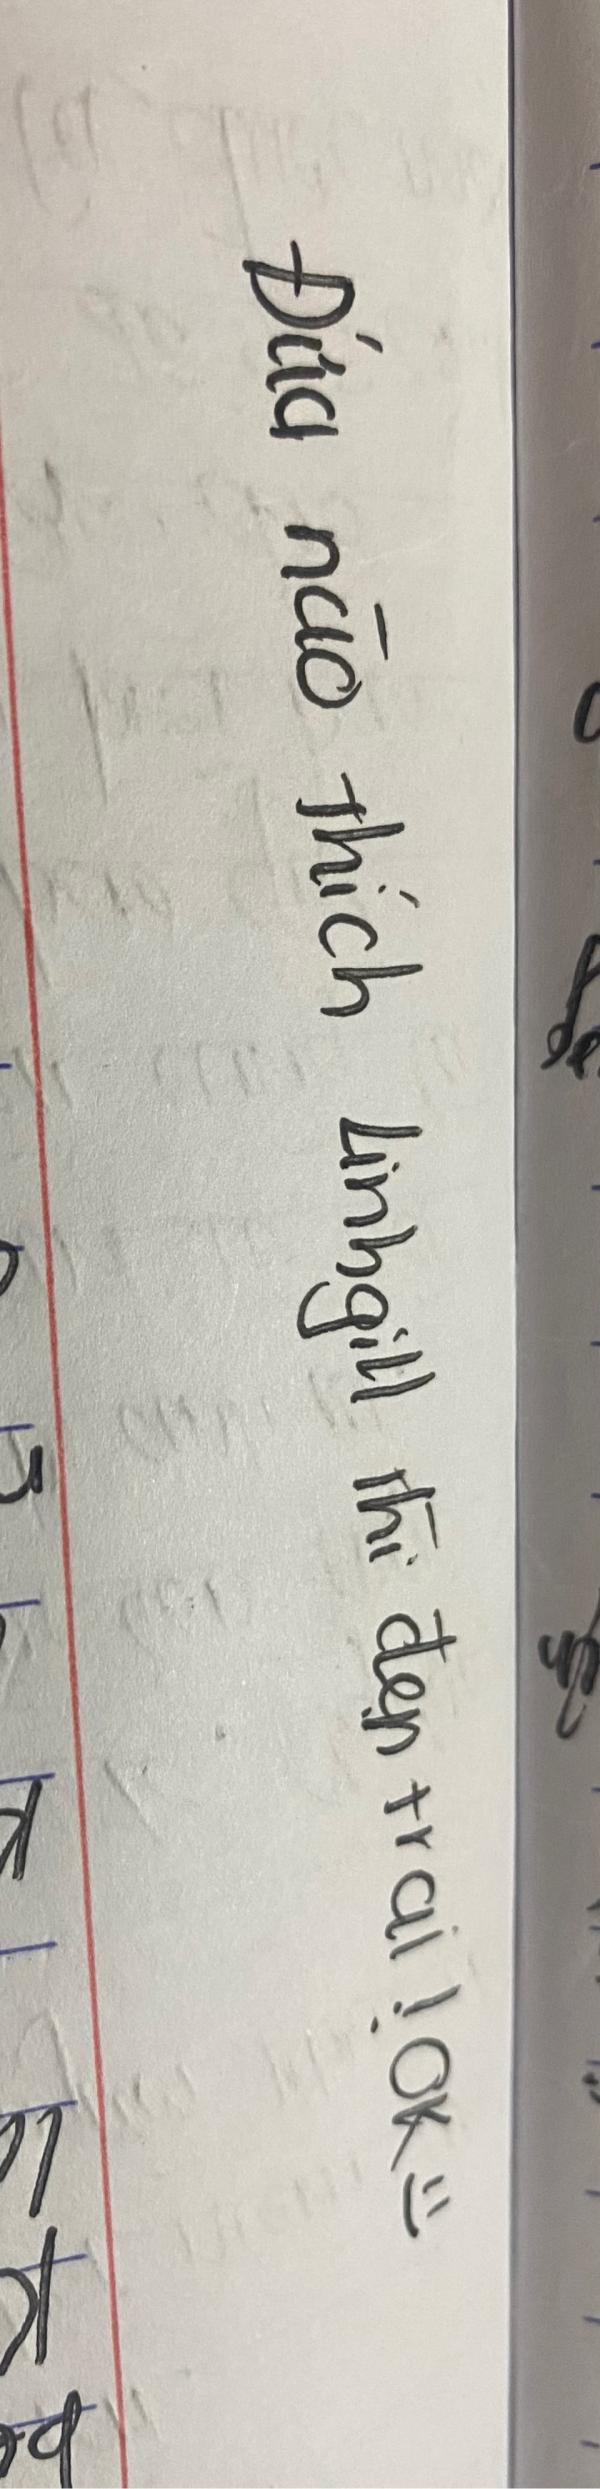 Đứa nào thích Linhgill thì đẹp trai! OK =)